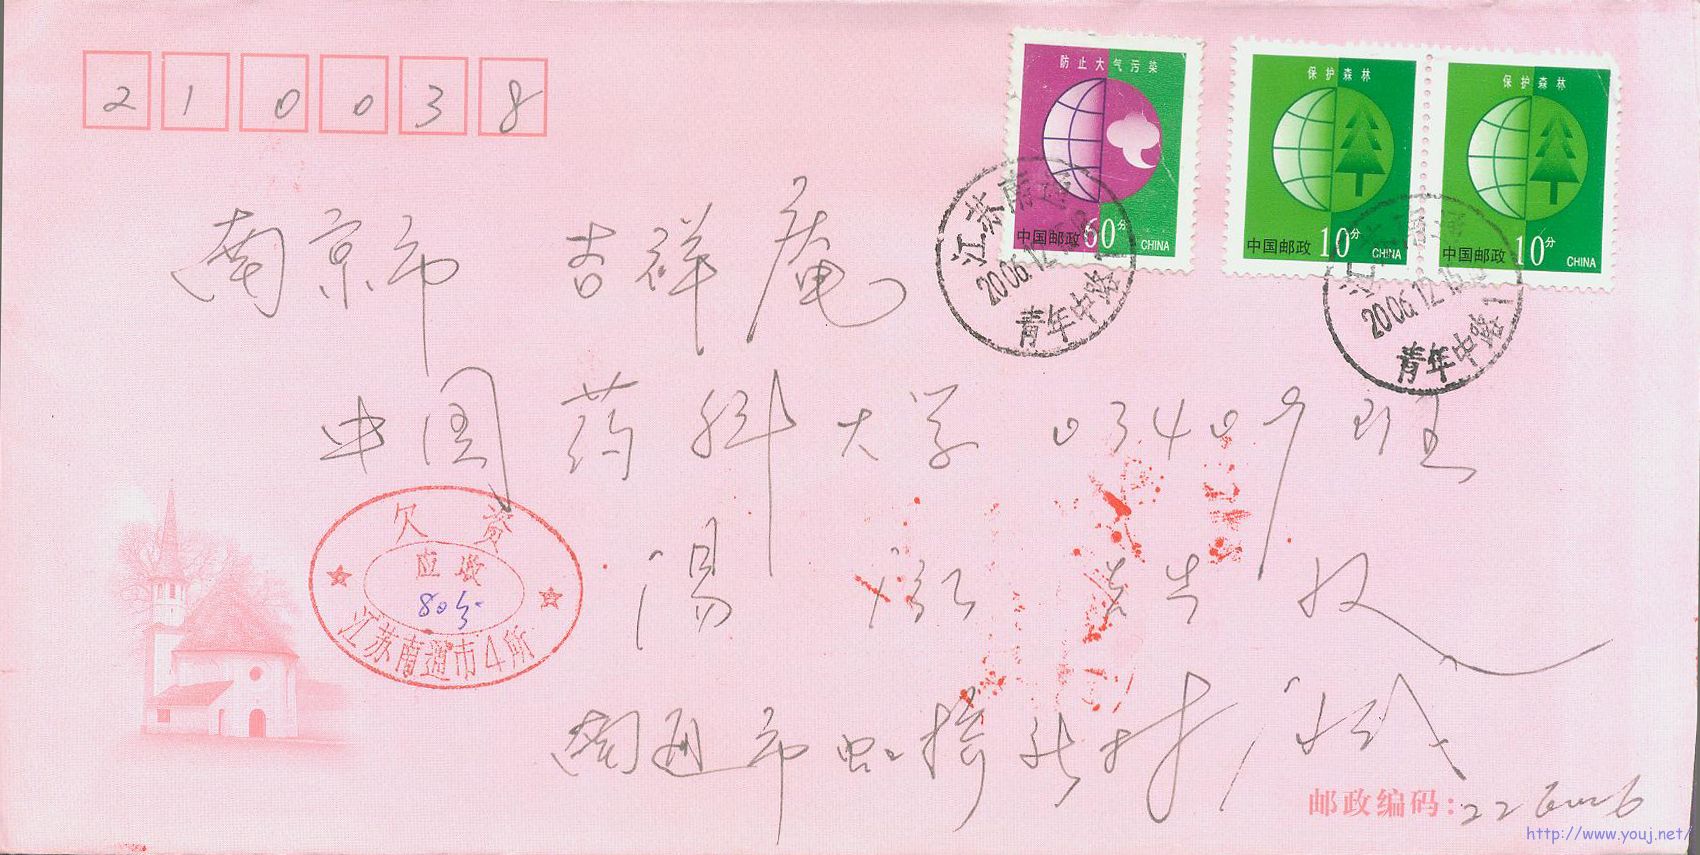 210038
防止大气污染
中国邮政 60分 CHINA
保护森林
中国邮政 10分 CHINA
保护森林
中国邮政 10分 CHINA
江苏南通
2006.12
青年中路1
江苏南通
2006.12.15
青年中路1
南京市 吉祥庵
中国药科大学 03409班
欠资
应收
80分
江苏南通市4所
汤 收
南通市虹桥新村
邮政编码: 226006
http://www.youj.net/